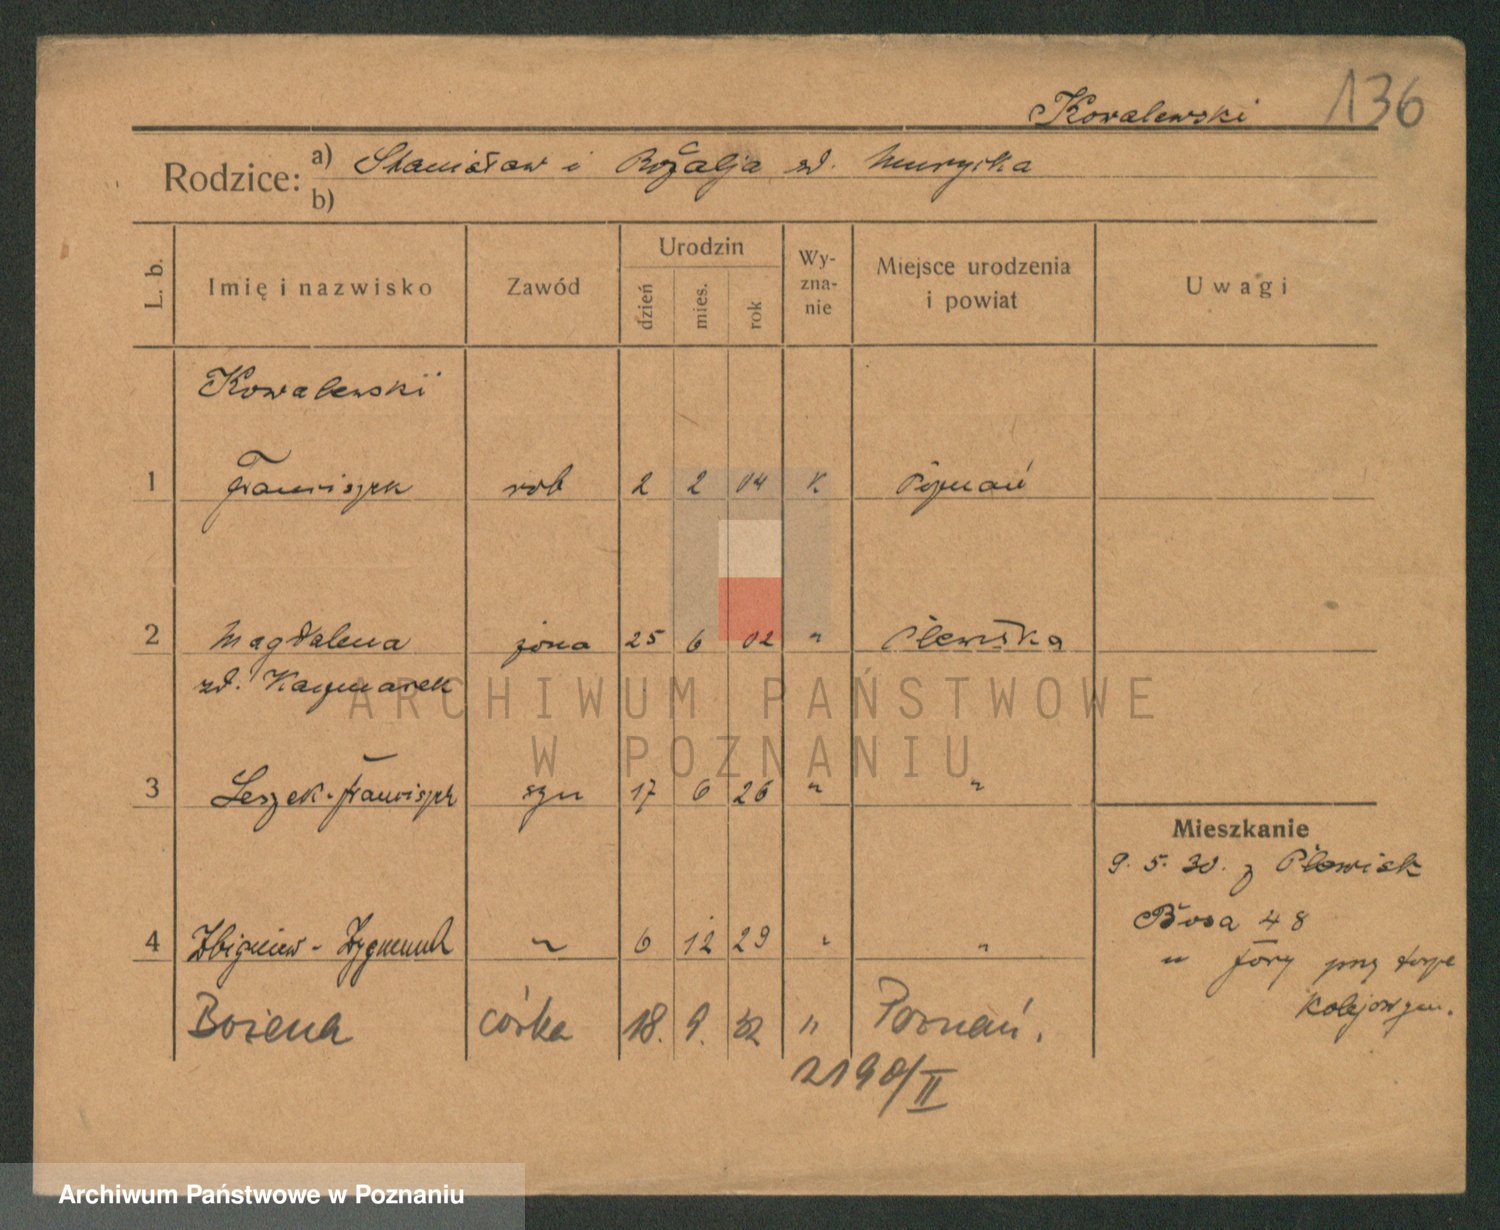 Kowalewski 136
Rodzice: a) Stanisław i Rozalja zd. Muryska
b)
L. b. Imię i nazwisko Zawód Urodzin dzień mies. rok Wy-zna-nie Miejsce urodzenia i powiat Uwagi
Kowalewski
1 Franciszek rob 2 2 04 K Poznań
2 Magdalena żona 25 6 02 " Plewiska
zd. Kaczmarek
ARCHIWUM PAŃSTWOWE
W POZNANIU
3 Leszek-Franciszek syn 17 6 26 " "
Mieszkanie
9. 5. 30. z Plewisk
Bosa 48
4 Zbigniew - Zygmunt " 6 12 29 " "
" przy torze
kolejowym.
Bożena córka 18. 9. 32 " Poznań.
2190/II
Archiwum Państwowe w Poznaniu